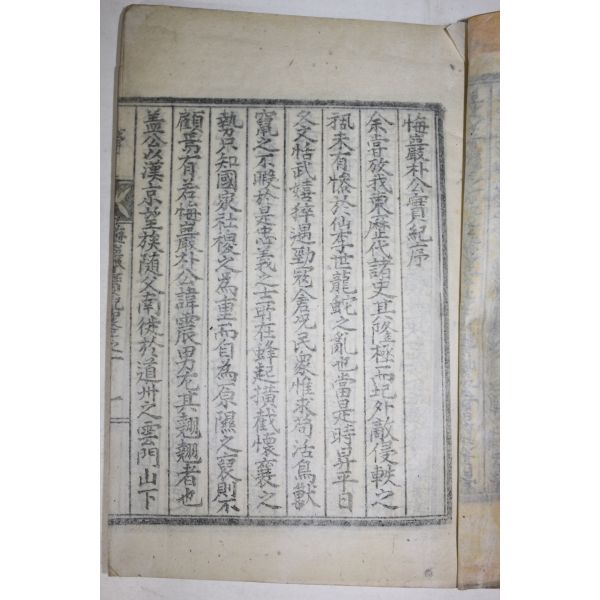 悔巖朴公實紀序
余嘗攷我東歷代諸史其隆極而圮外敵侵軼之
禍未有慘於仙李世龍蛇之亂也當是時昇平日
久文恬武嬉猝遇勁寇倉況民衆惟求苟活鳥獸
竄之不暇於是忠義之士所在蜂起橫戈懷褒之
勢只知國家社稷之爲重而自爲原隰之裒則不
顧焉有若悔巖朴公諱震男尤其翹翹者也
盖公以漢京望族隨父南徙於道州之雲門山下
序